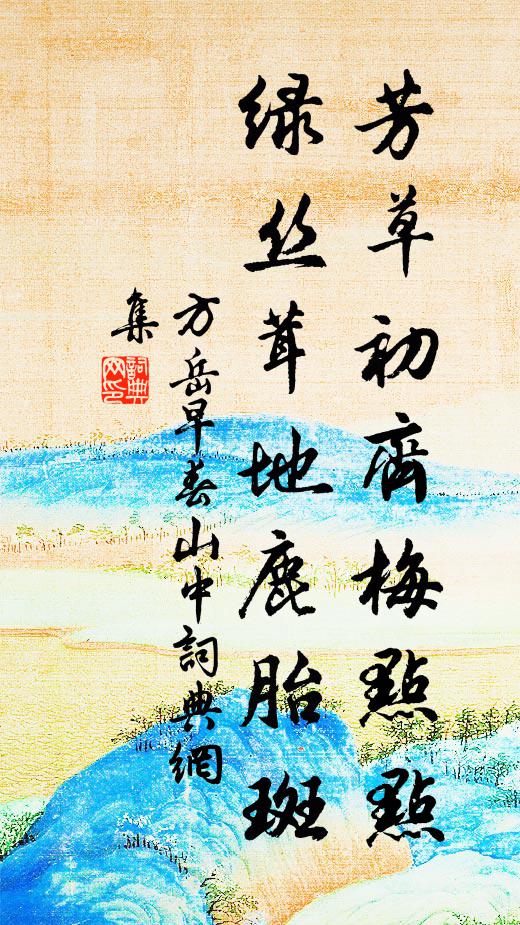 芳草初齊梅點點
绿丝茸地鹿胎斑
方岳早春山中詞典網
集
詞典
网印